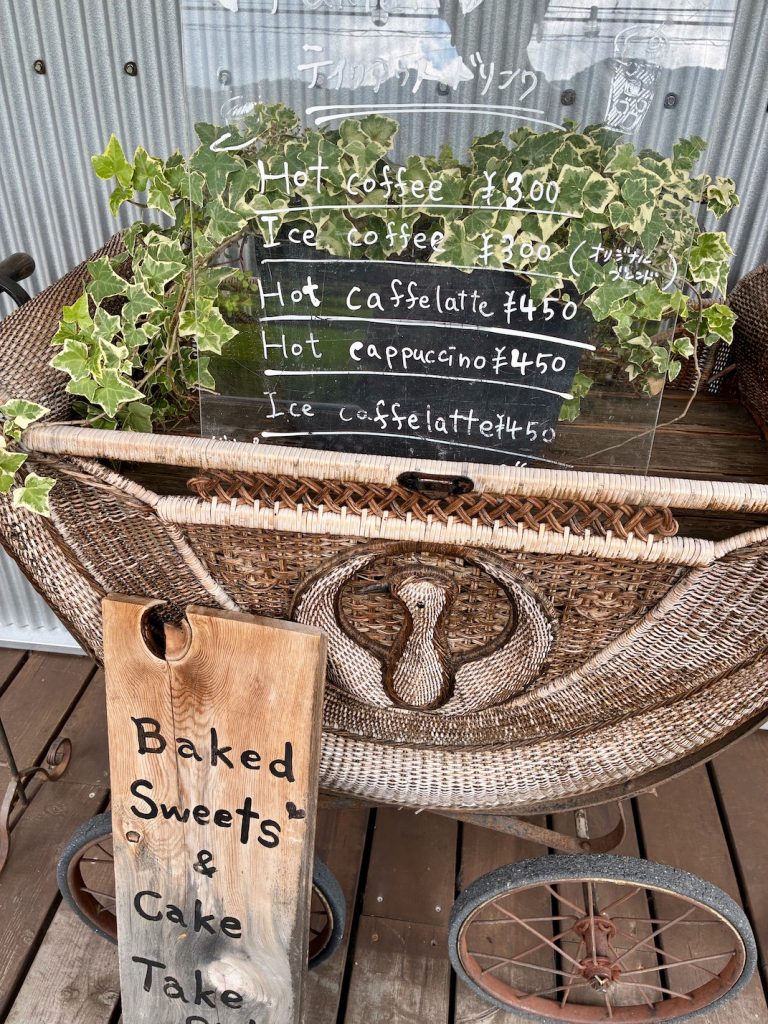 テイクアウトドリンク
Hot coffee ¥300
Ice coffee ¥300 (オリジナル
ブレンド)
Hot caffelatte ¥450
Hot cappuccino ¥450
Ice caffelatte ¥450
Baked
Sweets
&
Cake
Take